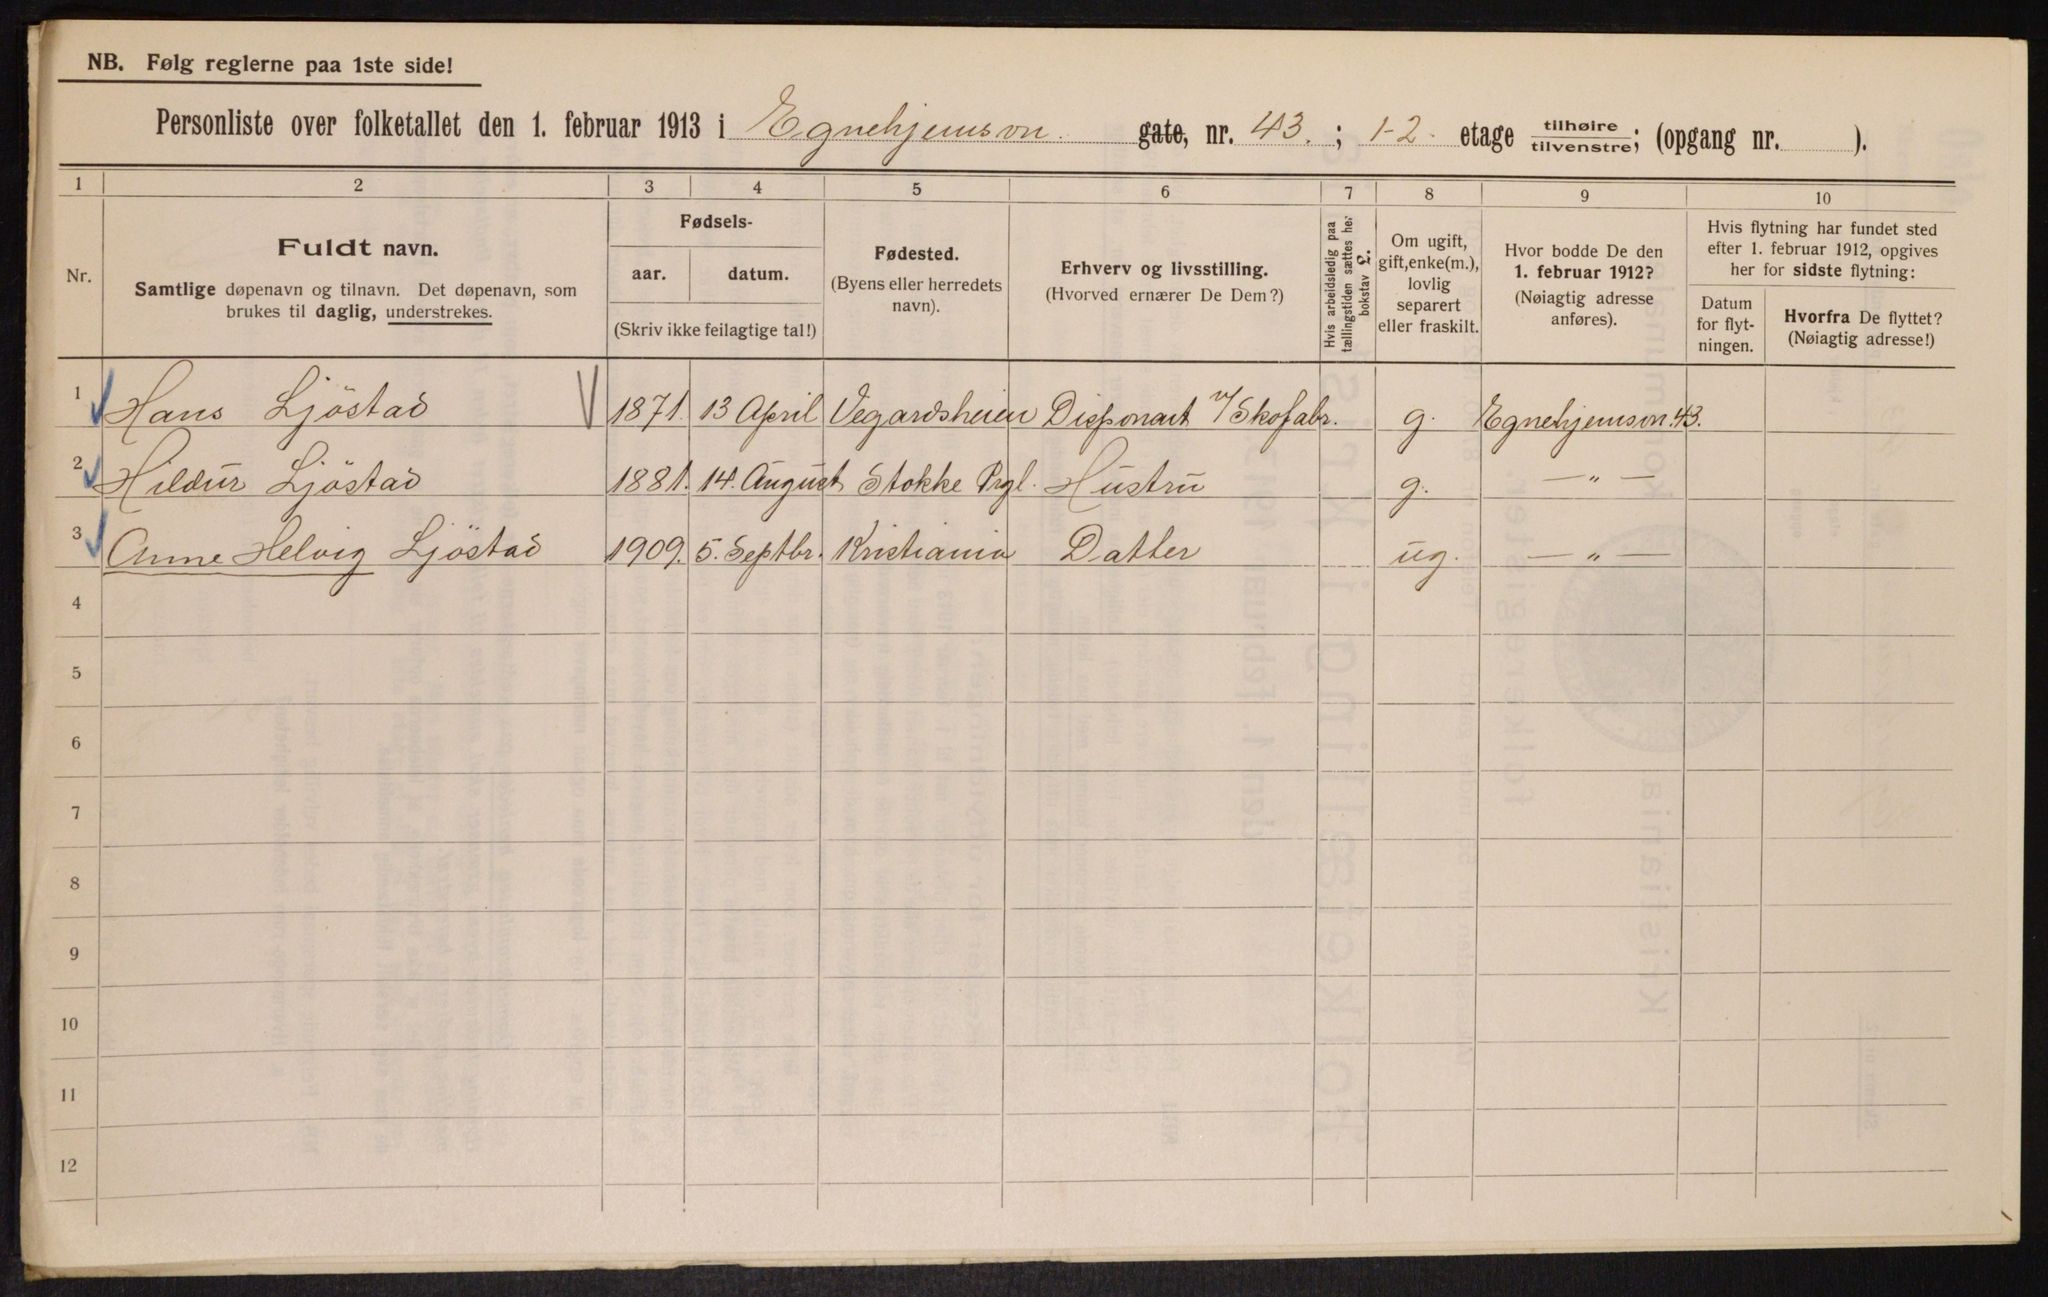 NB. Følg reglerne paa 1ste side!
Personliste over folketallet den 1. februar 1913 i Egnehjemson. gate, nr. 43. ; 1-2. etage tilhøire tilvenstre; (opgang nr. ).
1 2 3 4 5 6 7 8 9 10
Nr.
Fuldt navn.
Samtlige døpenavn og tilnavn. Det døpenavn, som
brukes til daglig, understrekes.
Fødsels-
aar. datum.
(Skriv ikke feilagtige tal!)
Fødested.
(Byens eller herredets
navn).
Erhverv og livsstilling.
(Hvorved ernærer De Dem?)
Hvis arbeidsledig paa
tællingstiden sættes her
bokstav L.
Om ugift,
gift, enke(m.),
lovlig
separert
eller fraskilt.
Hvor bodde De den
1. februar 1912?
(Nøiagtig adresse
anføres).
Hvis flytning har fundet sted
efter 1. februar 1912, opgives
her for sidste flytning:
Datum
for flyt-
ningen.
Hvorfra De flyttet?
(Nøiagtig adresse!)
1 Hans Ljöstad 1871. 13 April Vegardsheien Disponent v/Skofabr. g. Egnehjemson. 43.
2 Hildur Ljöstad 1881. 14. August Stokke Prgl. Hustru g. — " —
3 Anne Helvig Ljöstad 1909. 5. Septbr. Kristiania Datter ug. — " —
4
5
6
7
8
9
10
11
12